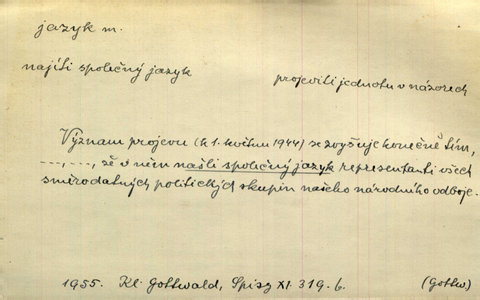 jazyk m.
najíti společný jazyk projeviti jednotu v názorech
Význam projevu (k 1. květnu 1944) se zvyšuje konečně tím,
---, ---, že v něm našli společný jazyk representanti všech
směrodatných politických skupin našeho národního odboje.
1955. Kl. Gottwald, Spisy XI. 319. b. (Gottw.)